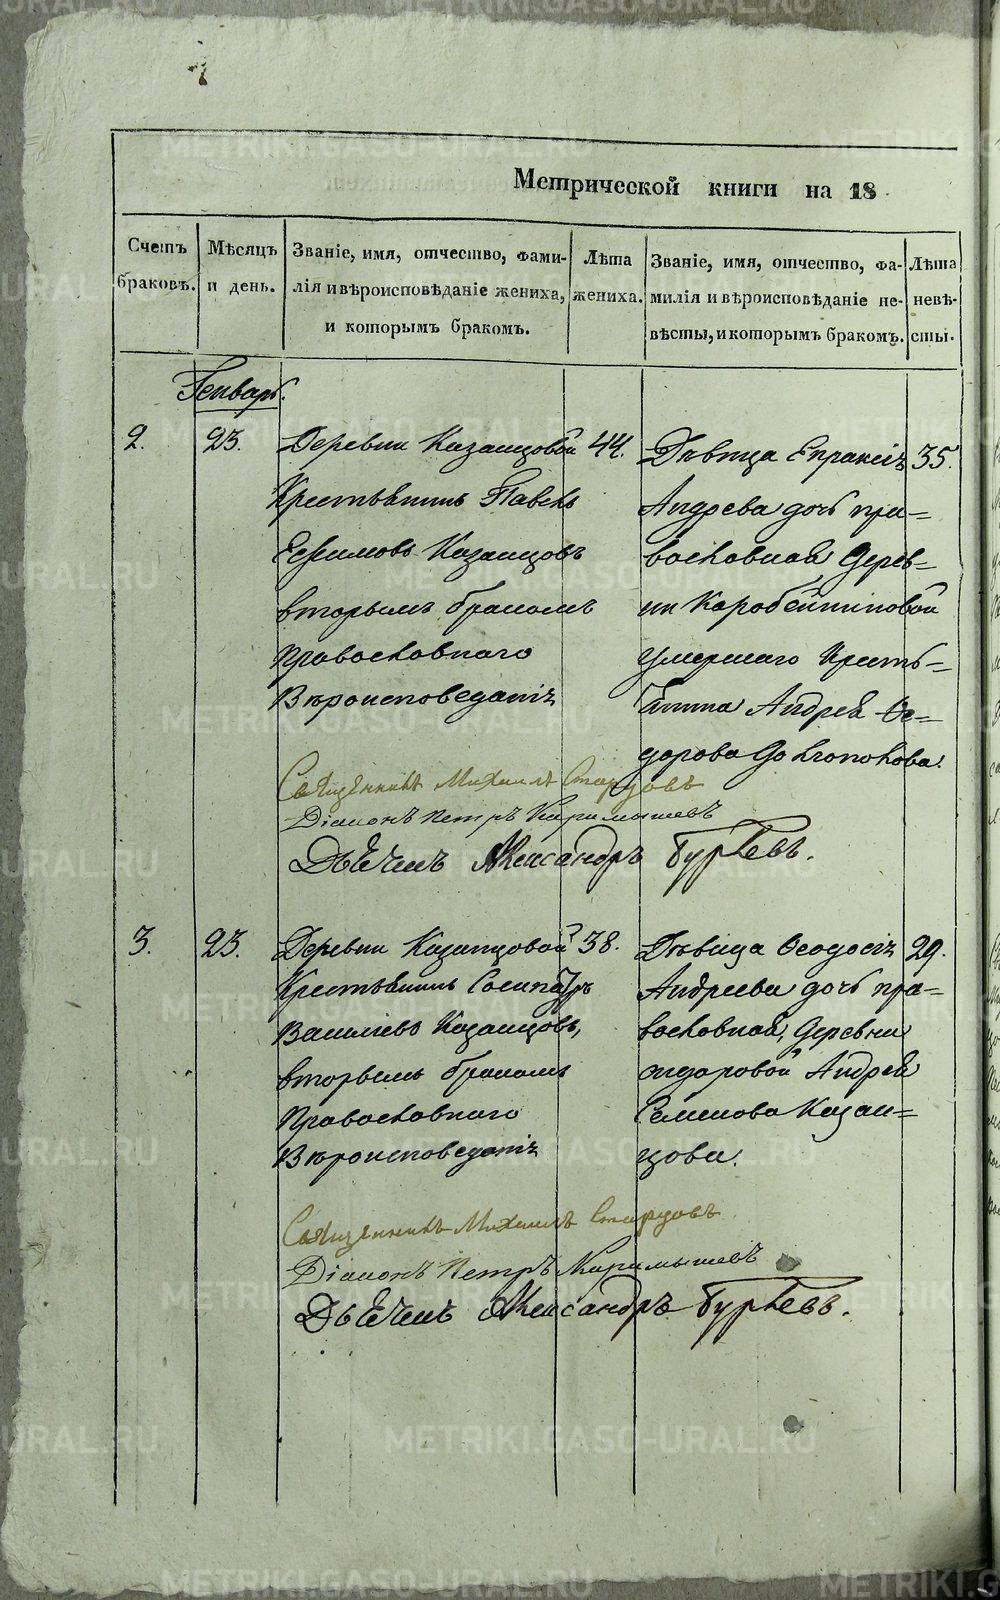 Метрической книги на 18
Счетъ браковъ.
Мѣсяцъ и день.
Званіе, имя, отчество, фами-
лія и вѣроисповѣданіе жениха,
и которымъ бракомъ.
Лѣта жениха.
Званіе, имя, отчество, фа-
милія и вѣроисповѣданіе не-
вѣсты, и которымъ бракомъ.
Лѣта невѣ-
сты.
Генварь.
2.
23.
Деревни Казанцовой
Крестьянинъ Павелъ
Ефимовъ Казанцовъ
вторымъ бракомъ
Православнаго
Вѣроисповеданія
44.
Дѣвица Епраксія
Андрева дочь пра-
вославная Дерев-
ни Коробейниковой
умершаго Кресть-
янина Андрея Ѳе-
дорова
35.
Священникъ Михаилъ Старцовъ
Діаконъ Петръ Карамышевъ
Дьячекъ Александръ Гурьевъ.
3.
23.
Деревни Казанцовой
Крестьянинъ Сосипатръ
Василіевъ Казанцовъ,
вторымъ бракомъ
Православнаго
Вѣроисповеданія
38.
Дѣвица Ѳеодосія
Андреева дочь пра-
вославная, Деревни
Андрея
Семенова Казан-
цова.
29.
Священникъ Михаилъ Старцовъ
Діаконъ Петръ Карамышевъ
Дьячекъ Александръ Гурьевъ.
METRIKI.GASO-URAL.RU